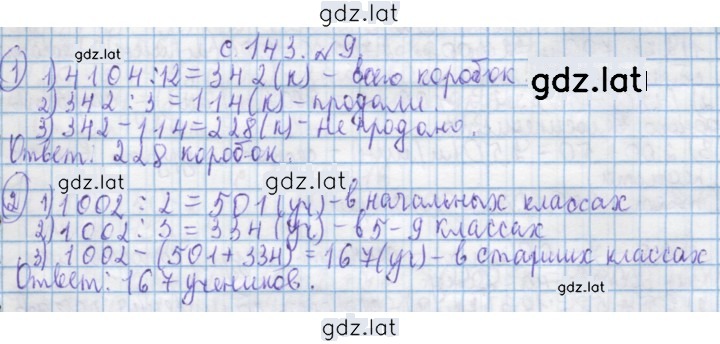 gdz.lat
с. 143. №9.
gdz.lat
① 1) 4104:12=342(к) - всего коробок
gdz.lat
2) 342:3=114(к) - продали
3) 342-114=228(к) - не продано.
Ответ: 228 коробок.
gdz.lat
gdz.lat
② 1) 1002:2=501(уч) - в начальных классах
2) 1002:3=334(уч) - в 5-9 классах
3) 1002-(501+334)=167(уч) - в старших классах
Ответ: 167 учеников.
gdz.lat
gdz.lat